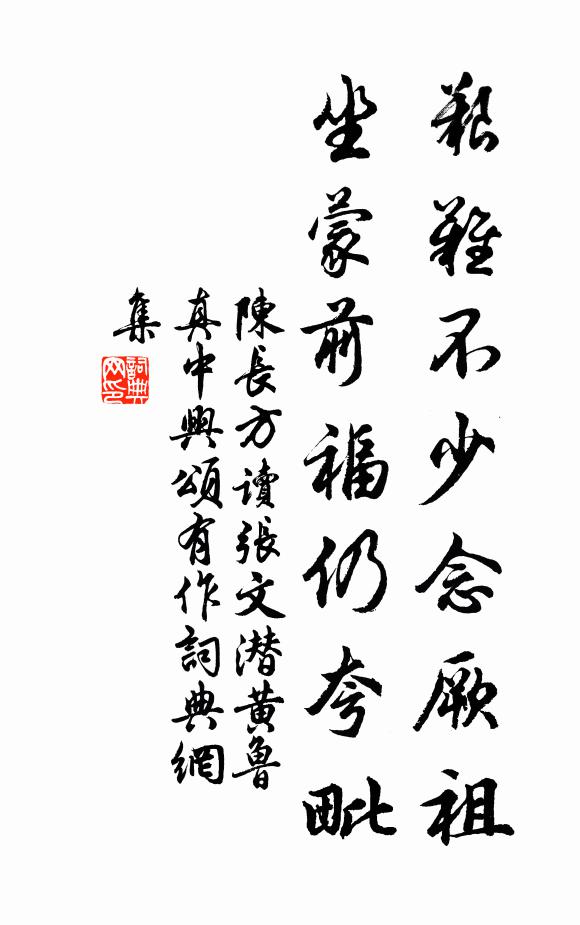 艱難不少念厥祖
坐蒙前福仍夸毗
陳長方讀張文潜黄魯
真中興頌有作詞典網
集
詞典網印